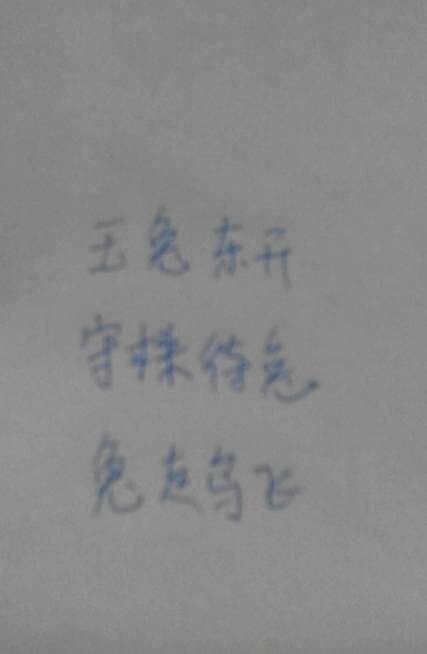 玉兔东升
守株待兔
兔走乌飞